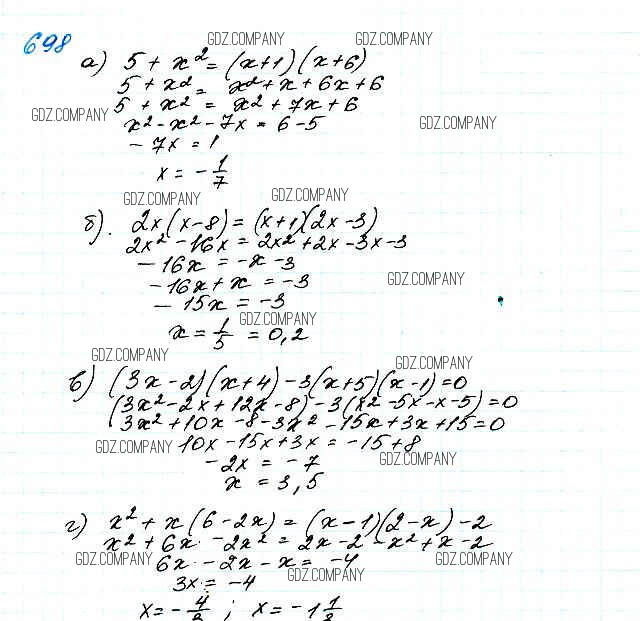 698
GDZ.COMPANY GDZ.COMPANY
а) 5 + x² = (x+1)(x+6)
5 + x² = x² + x + 6x + 6
5 + x² = x² + 7x + 6
GDZ.COMPANY GDZ.COMPANY
x² - x² - 7x = 6 - 5
- 7x = 1
x = - 1/7
GDZ.COMPANY GDZ.COMPANY
б). 2x(x-8) = (x+1)(2x-3)
2x² - 16x = 2x² + 2x - 3x - 3
- 16x = -x - 3
GDZ.COMPANY
- 16x + x = -3
- 15x = -3
GDZ.COMPANY
x = 1/5 = 0,2
GDZ.COMPANY GDZ.COMPANY
в) (3x-2)(x+4) - 3(x+5)(x-1) = 0
(3x² - 2x + 12x - 8) - 3(x² - 5x - x - 5) = 0
3x² + 10x - 8 - 3x² - 15x + 3x + 15 = 0
GDZ.COMPANY 10x - 15x + 3x = -15 + 8
GDZ.COMPANY
- 2x = - 7
x = 3,5
г) x² + x(6-2x) = (x-1)(2-x) - 2
x² + 6x - 2x² = 2x - 2 - x² + x - 2
GDZ.COMPANY GDZ.COMPANY
6x - 2x - x = -4
GDZ.COMPANY
3x = -4
x = - 4/3 ; x = -1 1/3